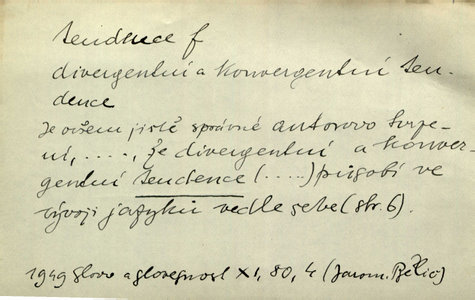 tendence f
divergentní a konvergentní ten-
dence
Je ovšem jistě správné autorovo tvrze-
ní, ....., že divergentní a konver-
gentní tendence (.....) působí ve
vývoji jazyků vedle sebe (str. 6).
1949 Slovo a slovesnost XI, 80, 4 (Jarom. Bělič)